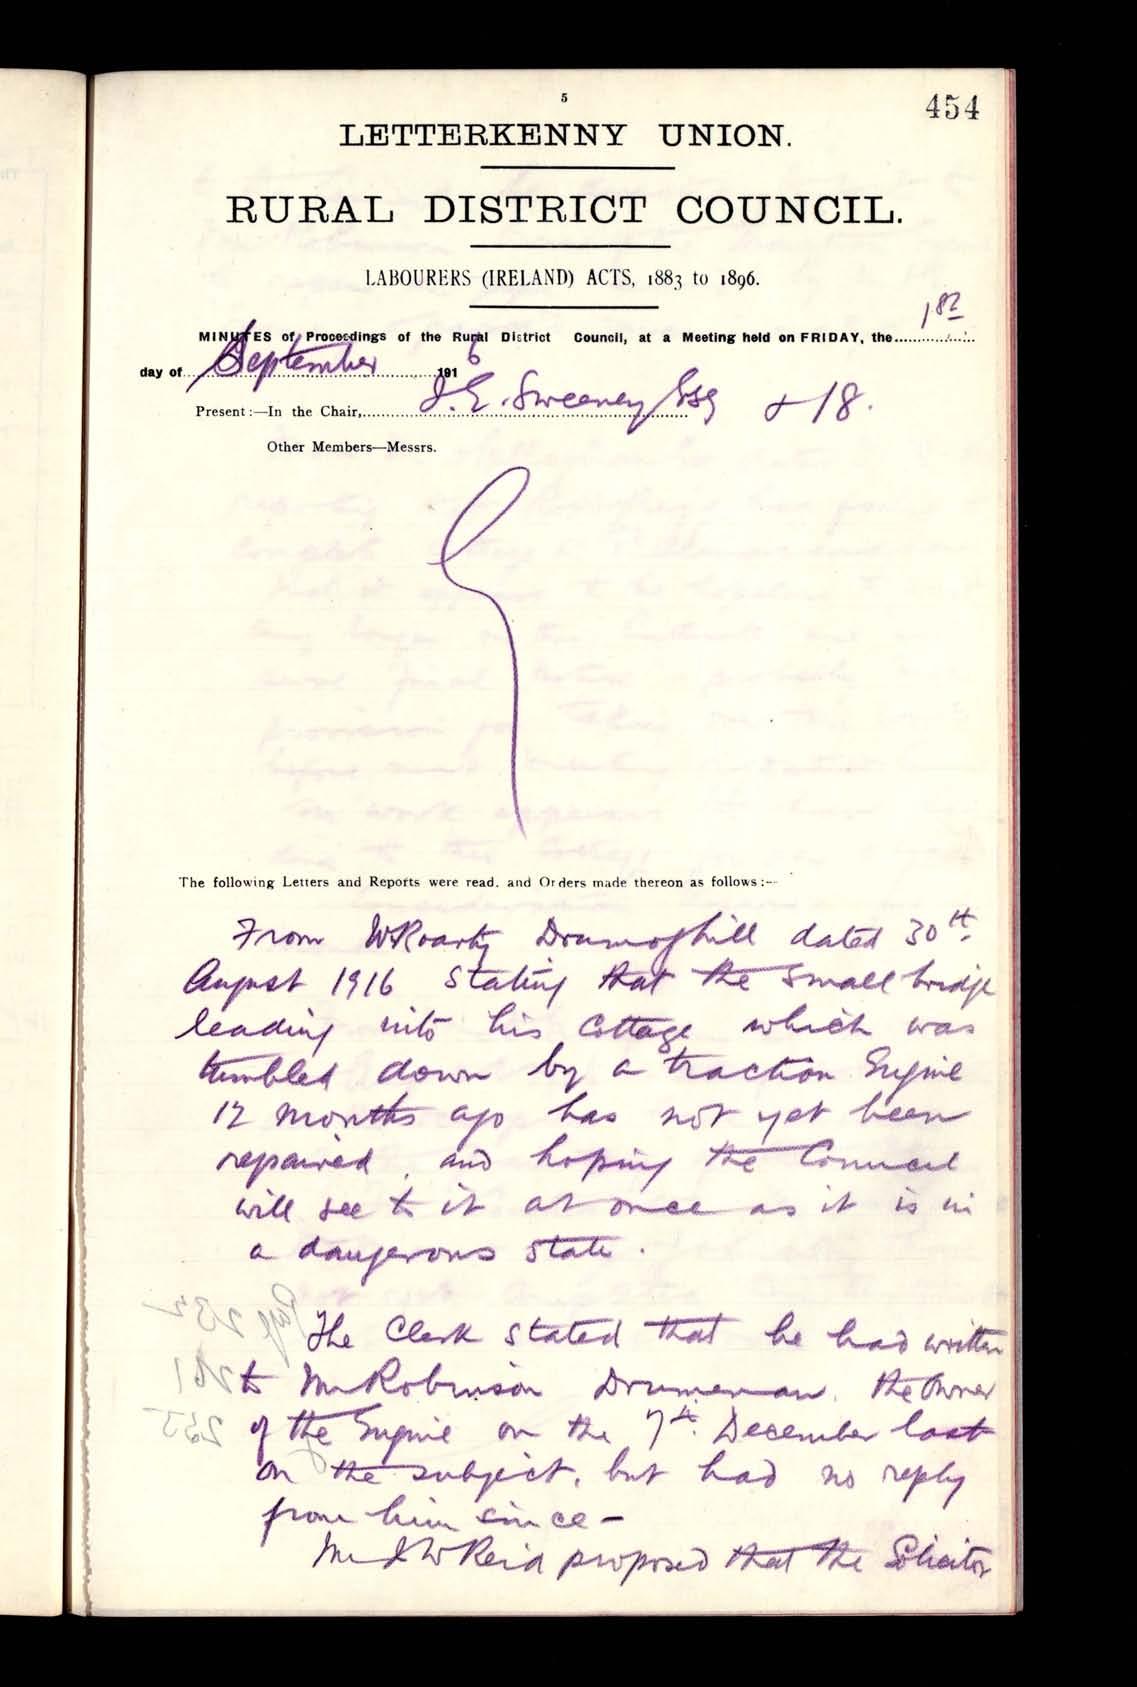 5
454
LETTERKENNY UNION.
RURAL DISTRICT COUNCIL.
LABOURERS (IRELAND) ACTS, 1883 to 1896.
MINUTES of Proceedings of the Rural District Council, at a Meeting held on FRIDAY, the 1st
day of September 1916
Present:—In the Chair, J. E. Sweeney Esq & 18.
Other Members—Messrs.
The following Letters and Reports were read, and Orders made thereon as follows:—
From W Roarty Drumoghill dated 30th.
August 1916 stating that the small bridge
leading into his cottage which was
tumbled down by a traction Engine
12 months ago has not yet been
repaired, and hoping the Council
will see to it at once as it is in
a dangerous state.
Page 232
The Clerk stated that he had written
261
to Mr Robinson Drumenan, the owner
255
of the Engine on the 7th. December last
on the subject, but had no reply
from him since —
Mr J W Reid proposed that the Solicitor